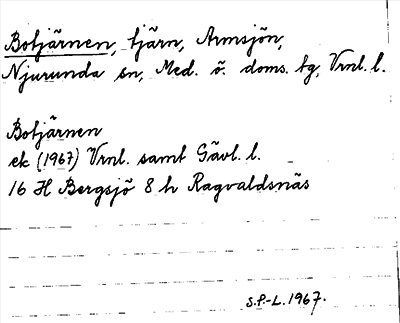 Botjärnen, tjärn, Armsjön,
Njurunda sn, Med. ö. doms. tg, Vrnl. l.
Botjärnen
ek (1967) Vrnl. samt Gävl. l.
16 H Bergsjö 8 h Ragvaldsnäs
S.P.-L. 1967.